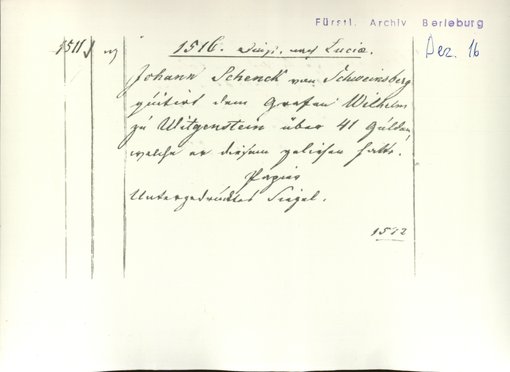 Fürstl. Archiv Berleburg
1511
1516. nach Luciæ.
Dez. 16
Johann Schenck von Schweinsberg
quitirt dem Grafen Wilhelm
zu Witgenstein über 41 Gulden,
welche er diesem geliehen hatte.
Papier
Untergedrücktes Siegel.
1572